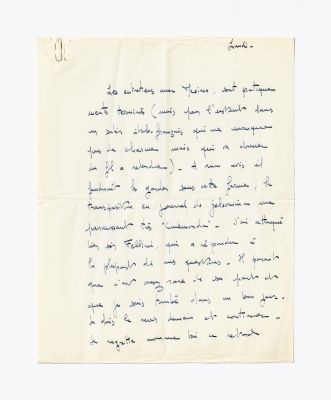 Lundi -
Les entretiens avec Masina, sont pratique
ments terminés (mais pour l'instant dans
un sabir italo-français qui ne manque
pas de charme mais qui va donner
du fil à retordre). A mon avis il
faudrait les garder sous cette forme, la
transposition en journal de Gelsomina me
paraissant très "Cinémonde". J'ai attaqué
hier soir Fellini, qui a répondu à
la plupart de mes questions. Il paraît
que c'est assez rare de sa part et
que je suis tombé dans un bon jour.
Je dois le revoir demain et continuer.
Je regrette comme toi ce retard